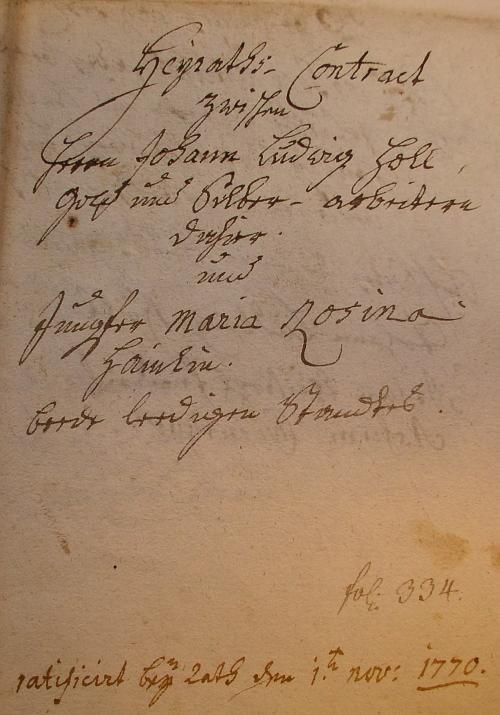 Heyraths- Contract
zwischen
Herrn Johann Ludwig Holl,
Gold und Silber- arbeitern
dahier.
und
Jungfer Maria Rosina
Hainlin.
beede leedigen Standtes.
fol: 334.
ratificirt bey Rath den 1.th nov: 1770.